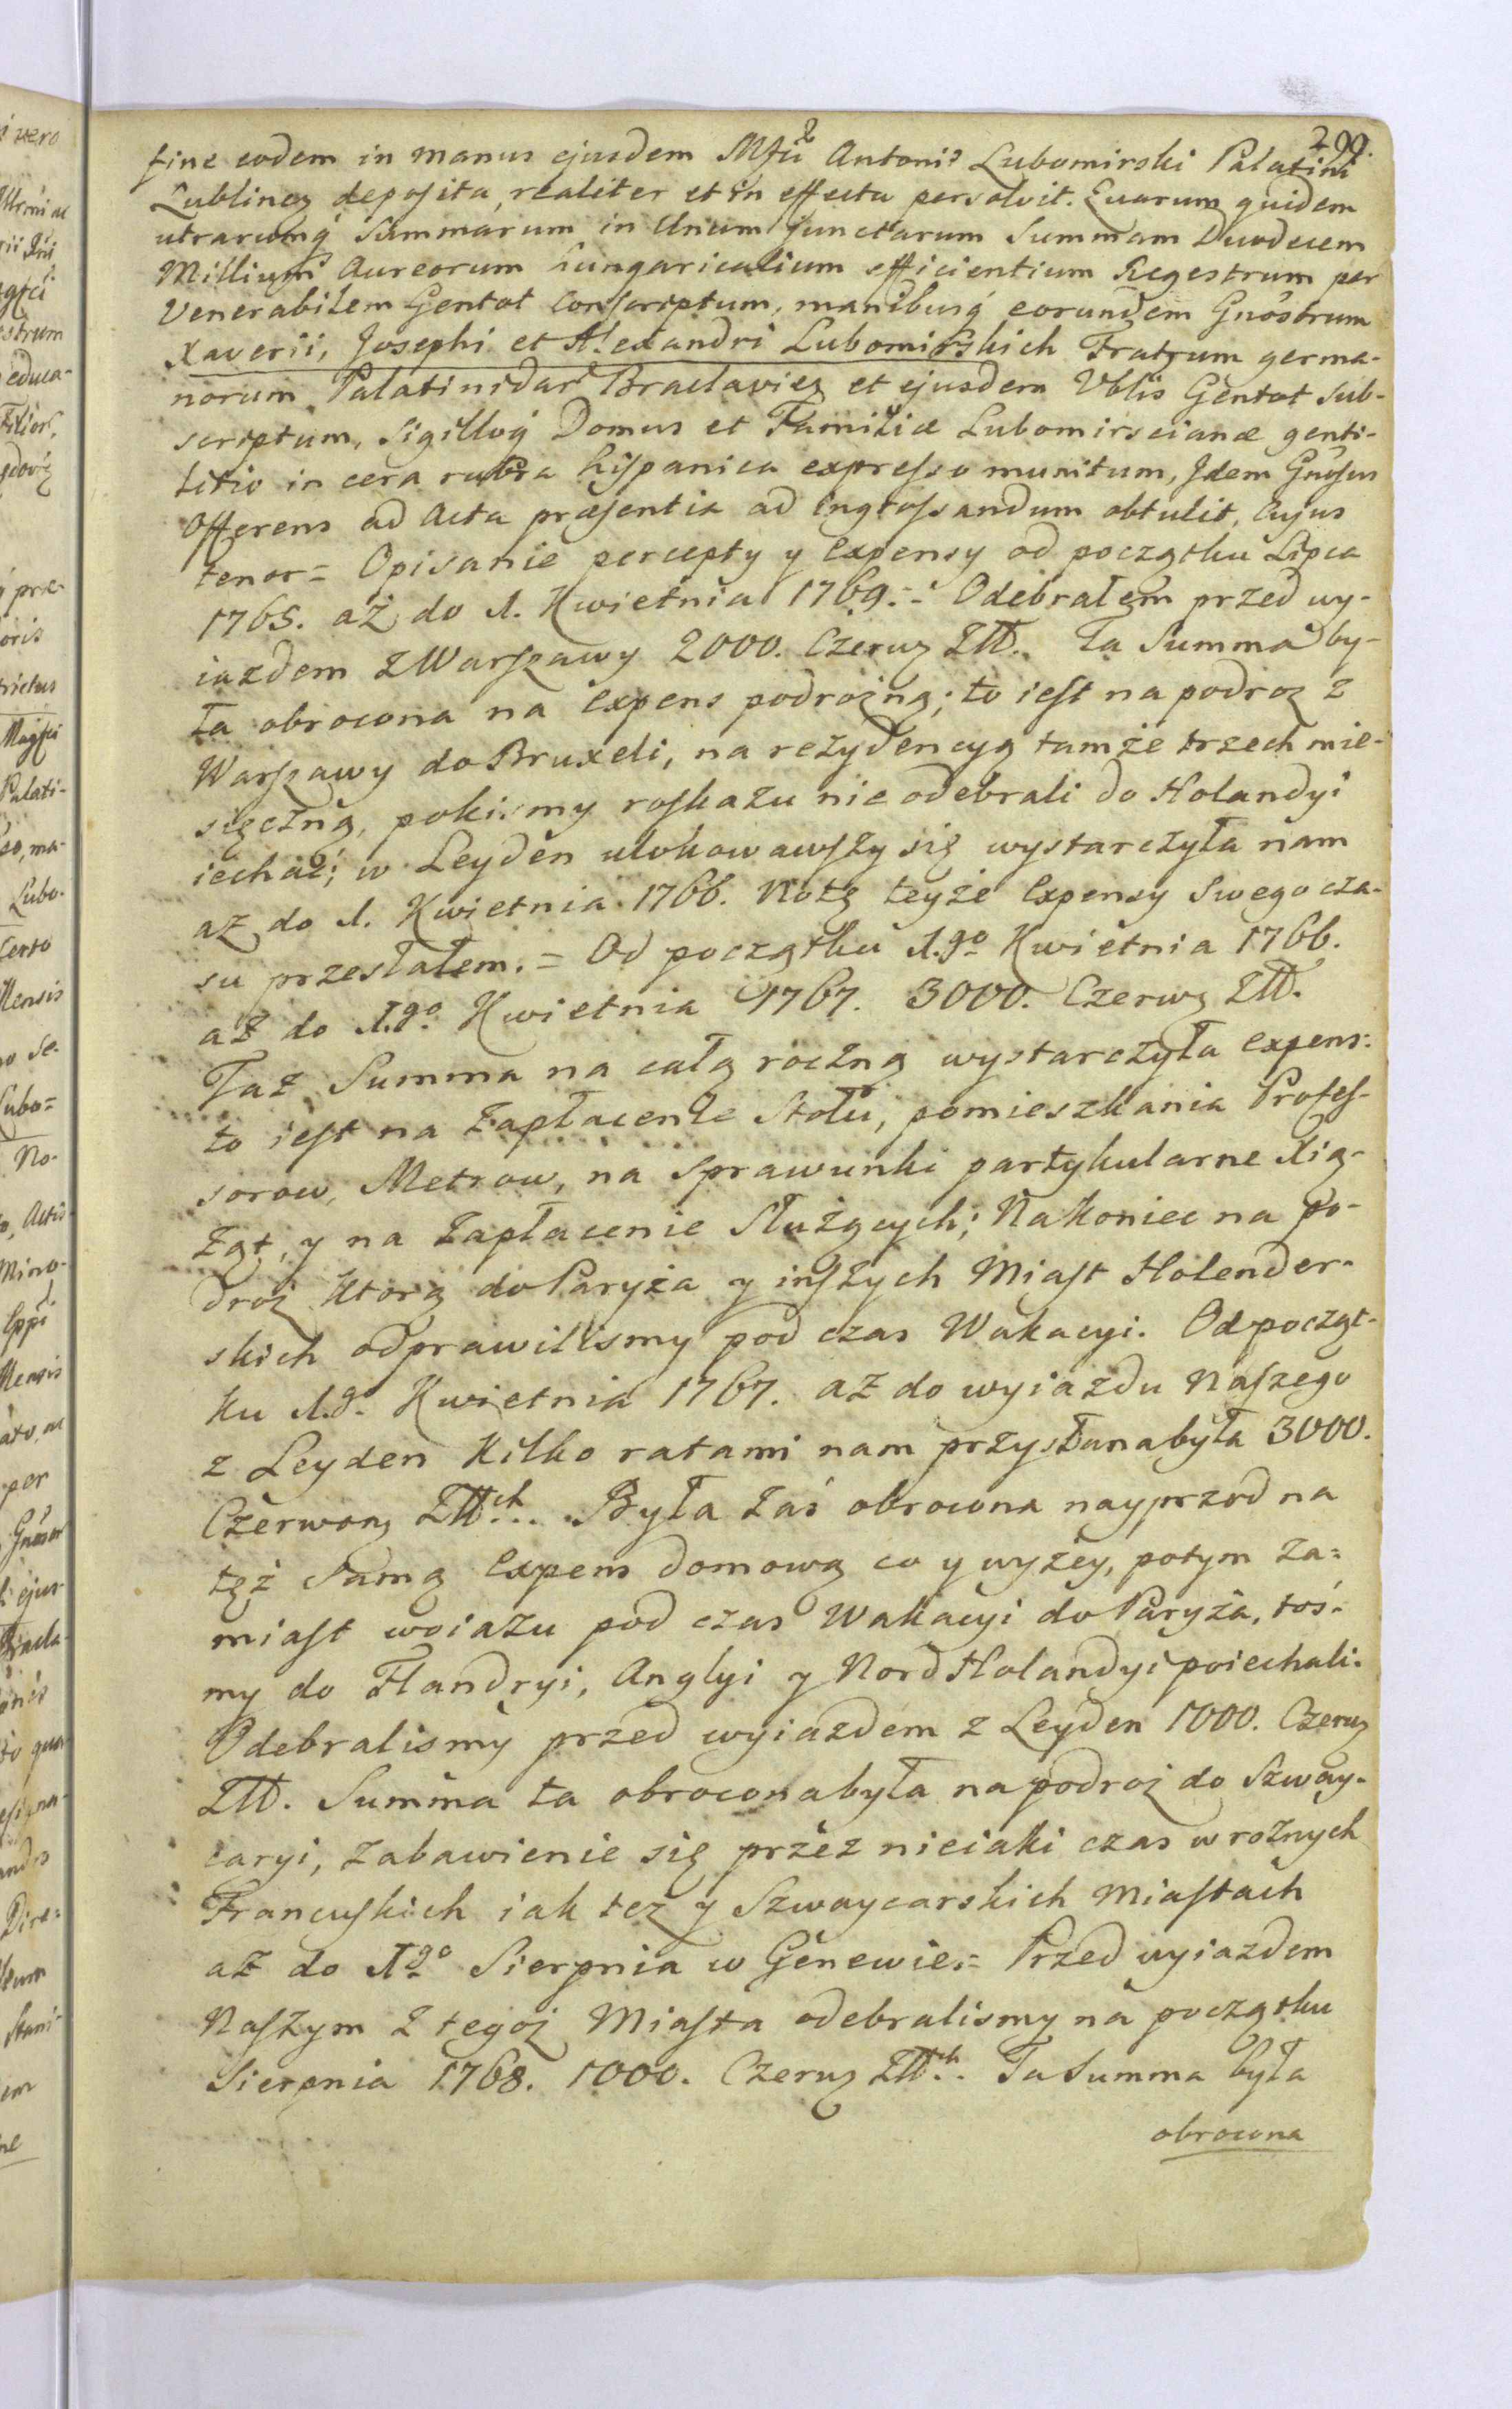 299.
fine eodem in manus ejusdem Mfci Antonii Lubomirski Palatini
Lublinen deposita, realiter et in effectu persolvit. Quarum quidem
utrarumq Summarum in Unum junctarum Summam Duodecem
Millium Aureorum hungaricalium efficientium Regestrum per
Venerabilem Gentot Conscriptum, manibusq eorundem Gnosorum
Xaverii, Josephi et Alexandri Lubomirskich Fratrum germa-
norum Palatinidar Braclavien et ejusdem Vblis Gentot sub-
scriptum, Sigilloq Domus et Familiæ Lubomirscianæ genti-
litio in cera rubra hispanica expresso munitum, Idem Gnosus
Offerens ad Acta præsentia ad ingrossandum obtulit, Cujus
tenor = Opisanie percepty y Expensy od początku Lipca
1765. aż do 1. Kwietnia 1769. = Odebrałem przed wy-
iazdem z Warszawy 2000. Czerw Złł. Ta Summa by-
ła obrocona na Expens podrożną; to iest na podroz z
Warszawy do Bruxeli, na rezydencyą tamże trzech mie-
sięczną, pokismy roskazu nie odebrali do Holandyi
iechać; w Leyden ulokowawszy się wystarczyła nam
aż do 1. Kwietnia 1766. Notę teyże Expensy Swego cza-
su przesłałem. = Od początku 1.go Kwietnia 1766.
aż do 1.go Kwietnia 1767. 3000. Czerw Złł.
Taż Summa na całą roczną wystarczyła Expens:
to iest na Zapłacenie Stołu, pomieszkania Profes-
sorow, Metrow, na Sprawunki partykularne Xią-
żąt, y na Zapłacenie Służących; Nakoniec na po-
droż Którą do Paryża y inszych Miast Holender-
skich odprawilismy pod czas Wakacyi. Od począt-
ku 1.go Kwietnia 1767. aż do wyiazdu Naszego
z Leyden Kilko ratami nam przysłana była 3000.
Czerwon Złłch. Była zaś obrocona nayprzod na
tęż Samą Expens domową co y wyżey, potym za=
miast woiazu pod czas Wakacyi do Paryża, toś-
my do Flandryi, Anglyi y Nord Holandyi poiechali.
Odebralismy przed wyiazdem z Leyden 1000. Czerw
Złł. Summa ta obrocona była na podroż do Szway-
caryi, Zabawienie się przez nieiaki czas w rożnych
Francuskich iak też y Szwaycarskich Miastach
aż do 1go Sierpnia w Genewie. = Przed wyiazdem
Naszym z tegoż Miasta odebralismy na początku
Sierpnia 1768. 1000. Czerw Złłch. Ta Summa była
obrocona